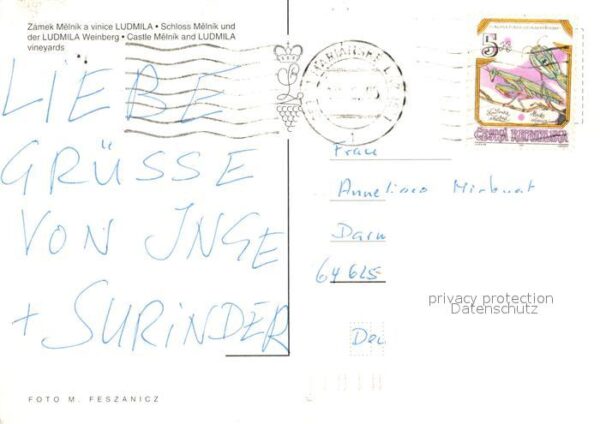 Zámek Mělník a vinice LUDMILA • Schloss Mělník und
der LUDMILA Weinberg • Castle Mělník and LUDMILA
vineyards
LIEBE
GRÜSSE
VON INGE
+ SURINDER
FOTO M. FESZANICZ
5
ČESKÁ REPUBLIKA
Frau
64625
privacy protection
Datenschutz